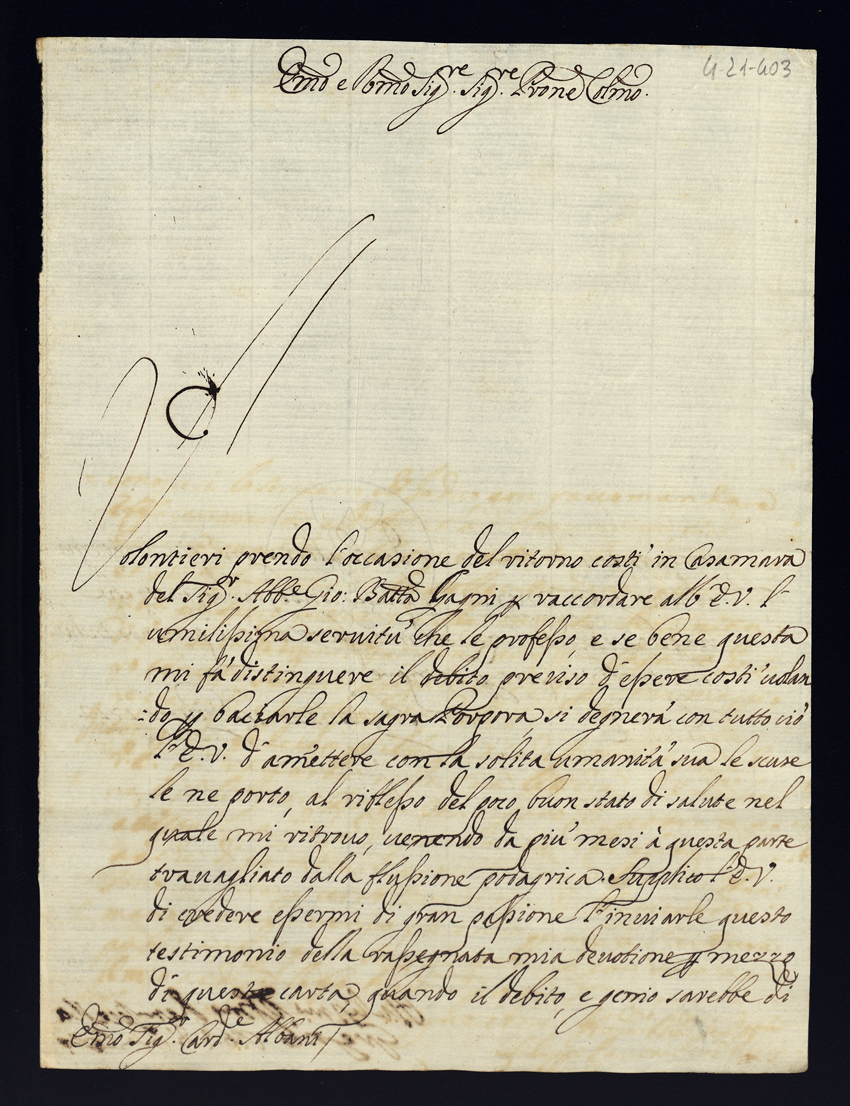 4-21-403
Emo e Rmo Sig.re Sig.re Prone Colmo.
Volontieri prendo l'occasione del ritorno costì in Casamara
del Sig.r Abb.e Gio: Batta Gagni p raccordare all'E.V. l'
umilissima servitù che le professo, e se bene questa
mi fà distinguere il debito preciso d'essere costì volan
:do p bacciarle la sagra Porpora si degnerà con tutto ciò
l'E.V. d'amettere con la solita umanità sua le scuse
le ne porto, al riflesso del poco buon stato di salute nel
quale mi ritrovo, venendo da più mesi à questa parte
travagliato dalla flussione podagrica. Supplico l'E.V.
di credere essermi di gran passione l'inviarle questo
testimonio della rassegnata mia devotione p mezzo
di questa carta, quando il debito, e genio sarebbe di
Emo Sig.r Card.le Albani